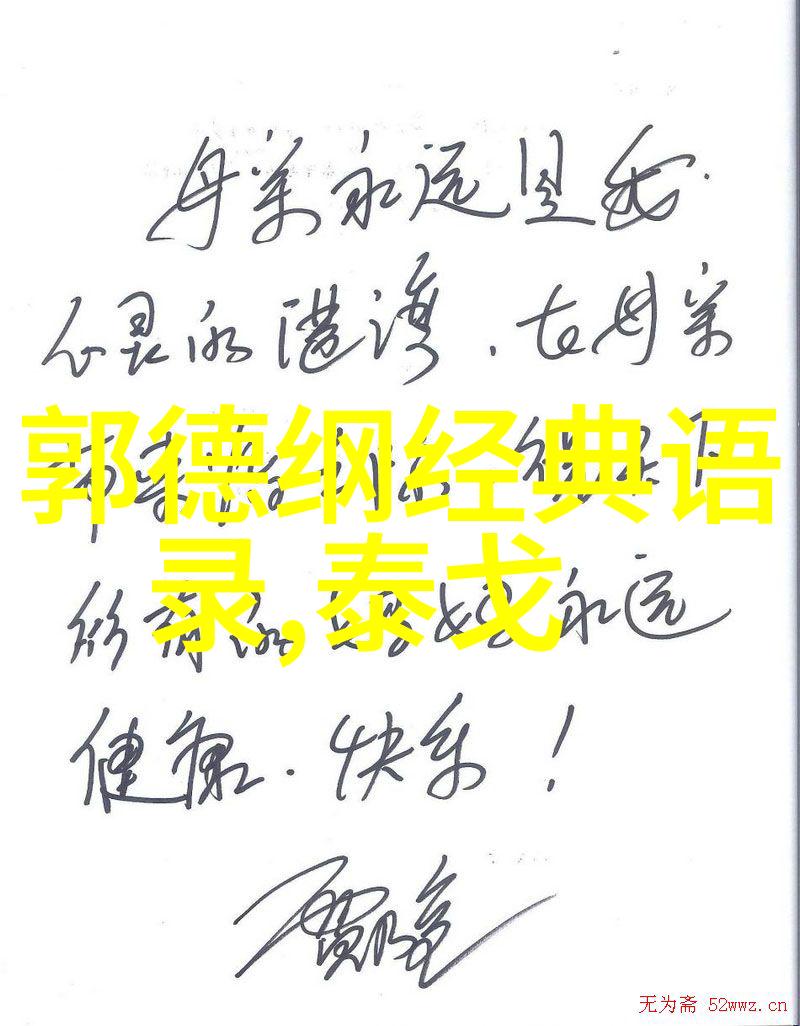 母亲永远是我
心灵的港湾,在母亲
郭德纲经典语
下
录,泰戈
永远
健康.快乐!
无为斋 52wwz.cn